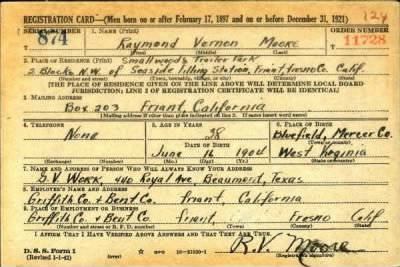 REGISTRATION CARD—(Men born on or after February 17, 1897 and on or before December 31, 1921)
124
SERIAL NUMBER 1. NAME (Print) ORDER NUMBER
874 Raymond Vernon Moore 11728
2. PLACE OF RESIDENCE (Print) Smallwoods Trailer Park
2 Blocks N.W. of Seaside Filling Station, Friant, Fresno Co. Calif.
(Number and street) (Town, township, village, or city) (County) (State)
[THE PLACE OF RESIDENCE GIVEN ON THE LINE ABOVE WILL DETERMINE LOCAL BOARD
JURISDICTION; LINE 2 OF REGISTRATION CERTIFICATE WILL BE IDENTICAL]
3. MAILING ADDRESS
Box 203 Friant, California
[Mailing address if other than place indicated on line 2. If same insert word same]
4. TELEPHONE 5. AGE IN YEARS 6. PLACE OF BIRTH
None 38 Bluefield, Mercer Co.
DATE OF BIRTH (Town or county)
June 16 1904 West Virginia
(Exchange) (Number) (Mo.) (Day) (Yr.) (State or country)
7. NAME AND ADDRESS OF PERSON WHO WILL ALWAYS KNOW YOUR ADDRESS
D.V. Work, 440 Royal Ave, Beaumont, Texas
8. EMPLOYER'S NAME AND ADDRESS
Griffith Co. & Bent Co. Friant, California
9. PLACE OF EMPLOYMENT OR BUSINESS
Griffith Co. & Bent Co. Friant, Fresno Calif
(Number and street or R. F. D. number) (Town) (County) (State)
I AFFIRM THAT I HAVE VERIFIED ABOVE ANSWERS AND THAT THEY ARE TRUE.
D. S. S. Form 1
(Revised 1-1-42) (over) 16-21630-1
R.V. Moore
(Registrant's signature)